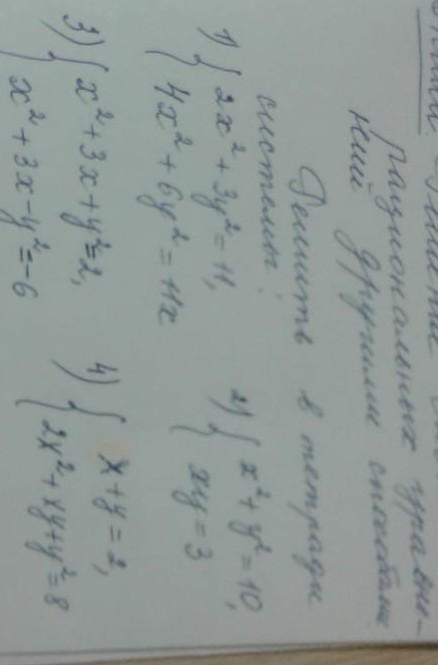 рациональных уравне-
ний другими способами
Решить в тетради
системы:
1) { 2x² + 3y² = 11,
4x² + 6y² = 11x
2) { x² + y² = 10,
xy = 3
3) { x² + 3x + y² = 2,
x² + 3x - y² = -6
4) { x + y = 2,
2x² + xy + y² = 8